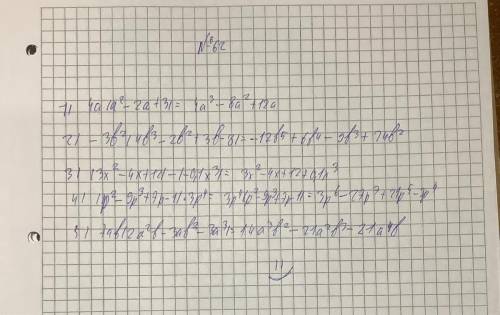 № 62
1) 4a(a²-2a+3)= 4a³-8a²+12a
2) -3b²(4b³-2b²+3b-8)=-12b⁵+6b⁴-9b³+24b²
3) (3x²-4x+12)-(-0,1x³)= 3x²-4x+12+0,1x³
4) (p²-9p³+7p-1)·3p⁴=
5) 7ab(2a²b-3ab²-3a³)=14a³b²-21a²b³-21a⁴b